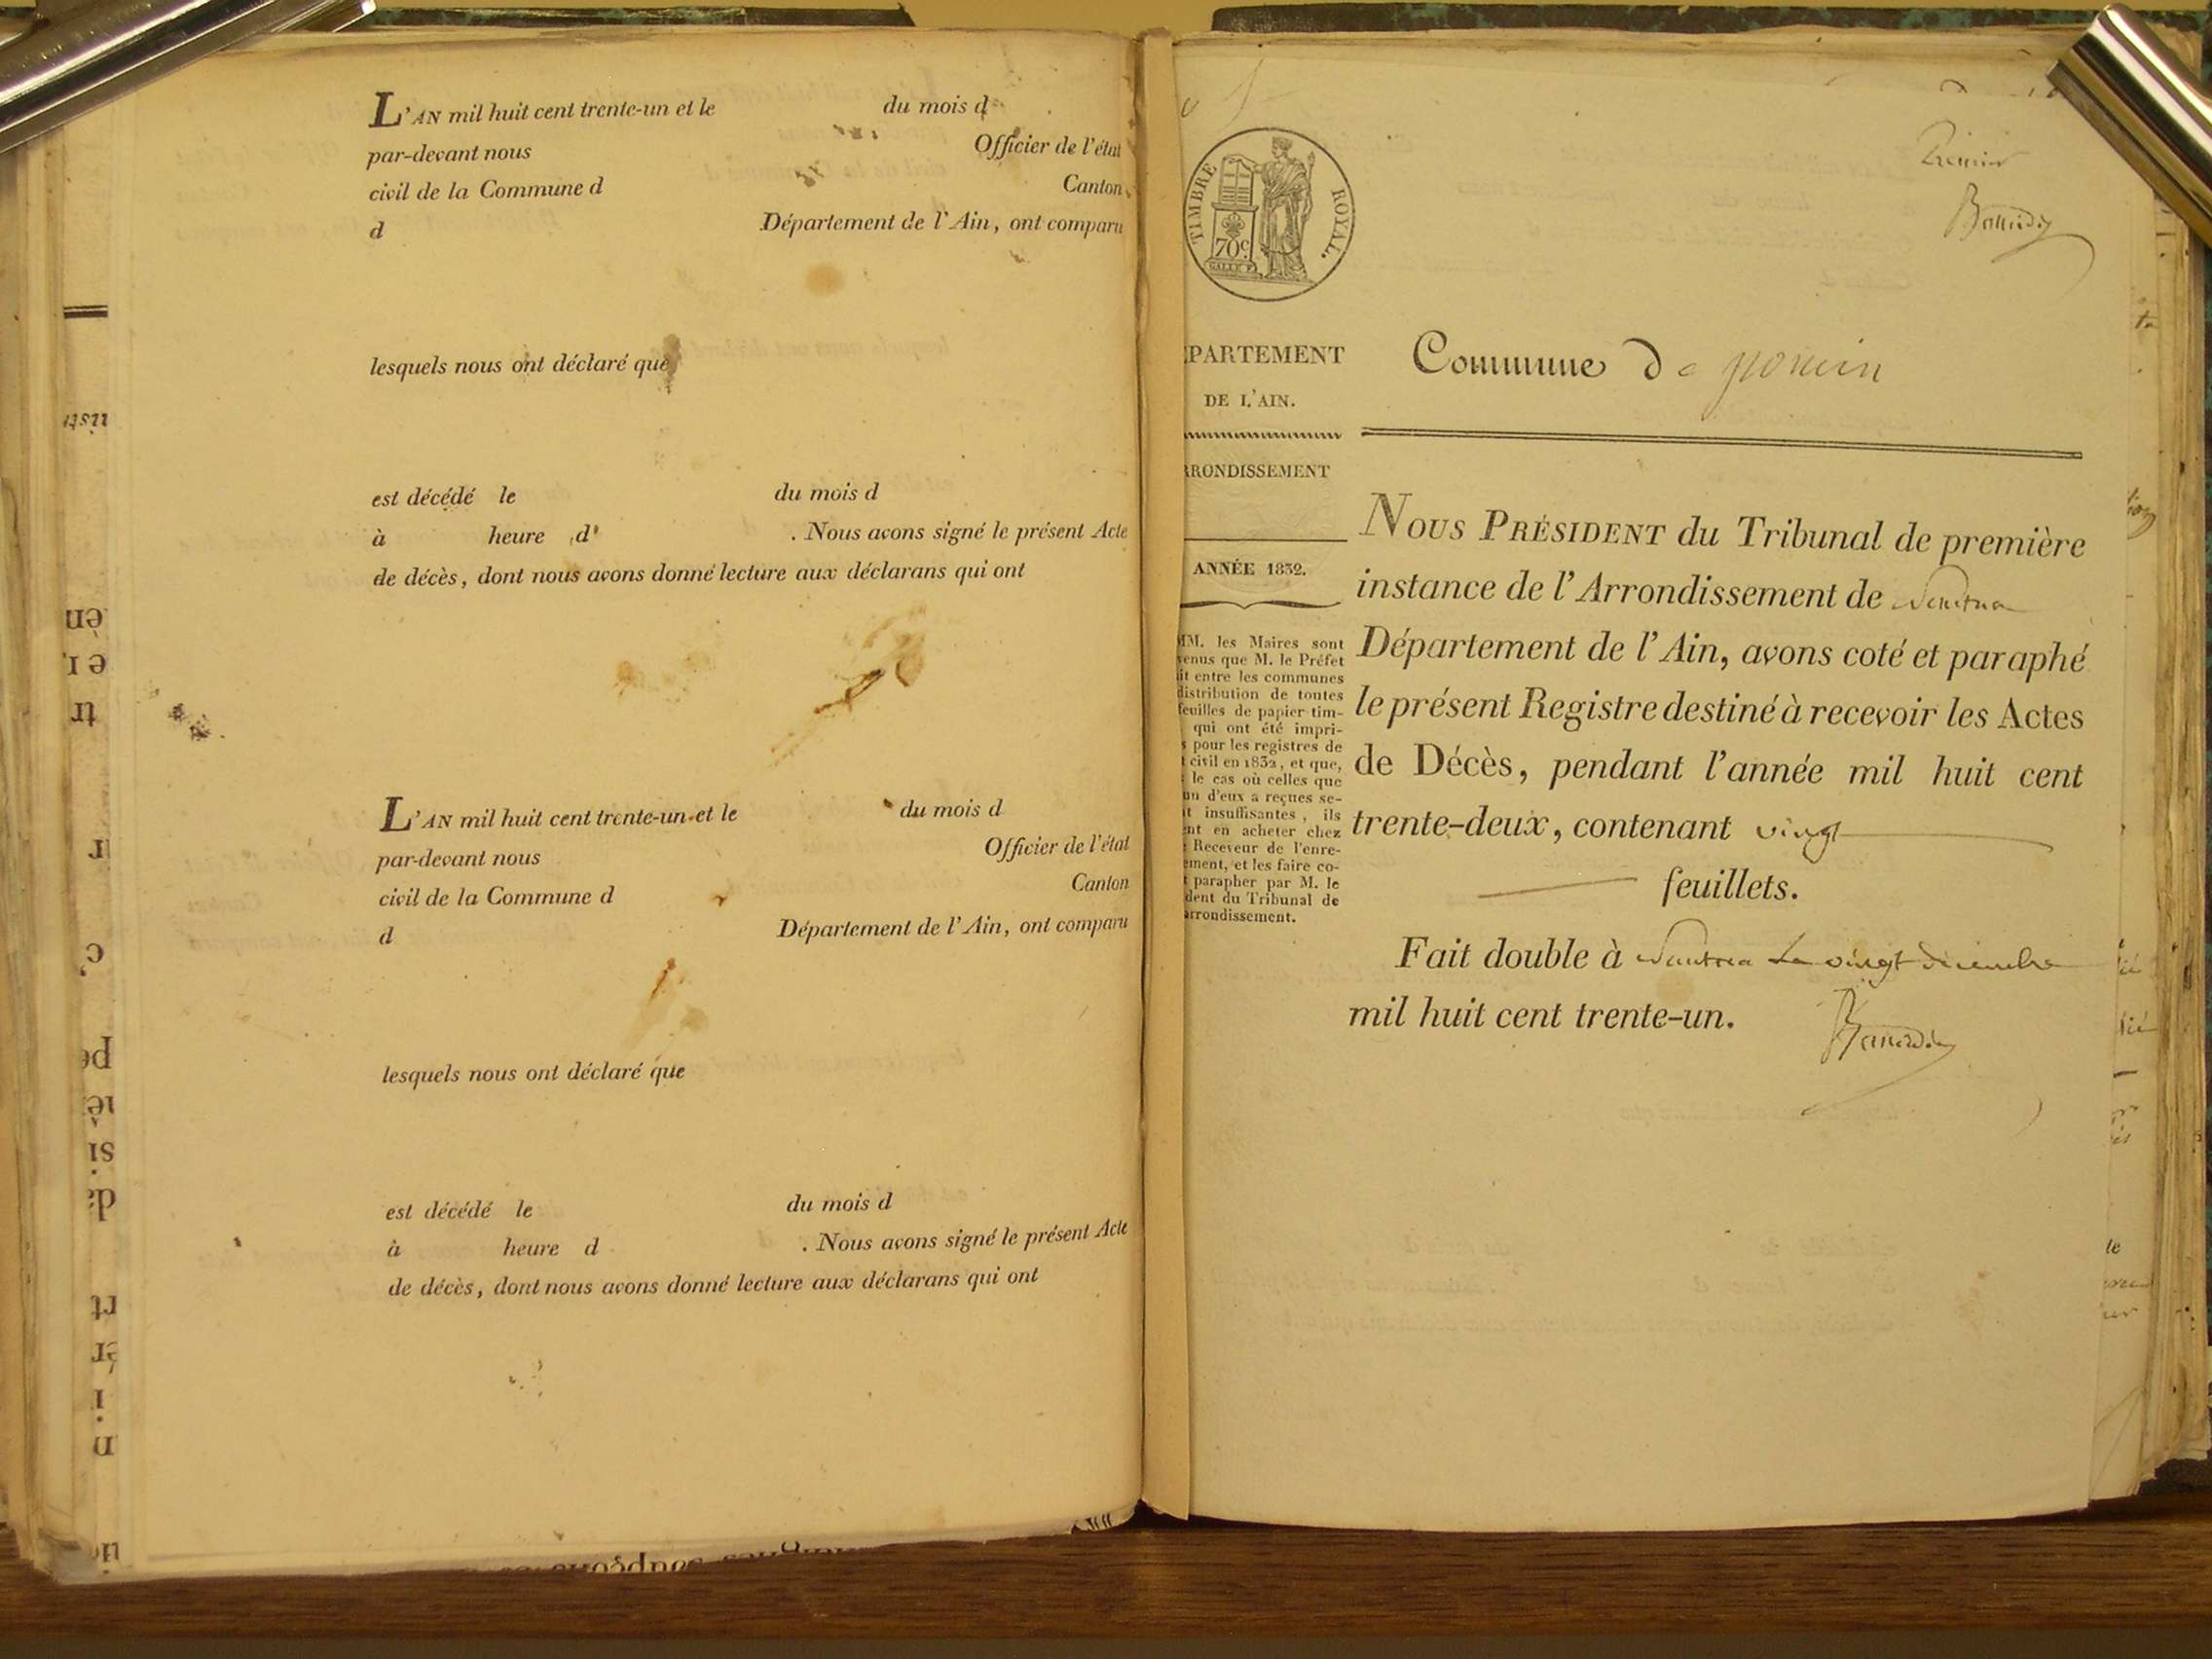 L'AN mil huit cent trente-un et le du mois d
par-devant nous Officier de l'état
civil de la Commune d Canton
d Département de l'Ain, ont comparu
lesquels nous ont déclaré que
est décédé le du mois d
à heure d . Nous avons signé le présent Acte
de décès, dont nous avons donné lecture aux déclarans qui ont
L'AN mil huit cent trente-un et le du mois d
par-devant nous Officier de l'état
civil de la Commune d Canton
d Département de l'Ain, ont comparu
lesquels nous ont déclaré que
est décédé le du mois d
à heure d . Nous avons signé le présent Acte
de décès, dont nous avons donné lecture aux déclarans qui ont
Premier
TIMBRE ROYAL.
70c.
PARTEMENT
DE L'AIN.
RRONDISSEMENT
ANNÉE 1832.
MM. les Maires sont
venus que M. le Préfet
it entre les communes
distribution de toutes
feuilles de papier tim-
qui ont été impri-
s pour les registres de
t civil en 1832, et que,
le cas où celles que
un d'eux a reçues se-
t insuffisantes, ils
ent en acheter chez
Receveur de l'enre-
ement, et les faire co-
t parapher par M. le
dent du Tribunal de
arrondissement.
Commune De poncin
NOUS PRÉSIDENT du Tribunal de première
instance de l'Arrondissement de Nantua
Département de l'Ain, avons coté et paraphé
le présent Registre destiné à recevoir les Actes
de Décès, pendant l'année mil huit cent
trente-deux, contenant vingt
feuillets.
Fait double à Nantua Le vingt décembre
mil huit cent trente-un.